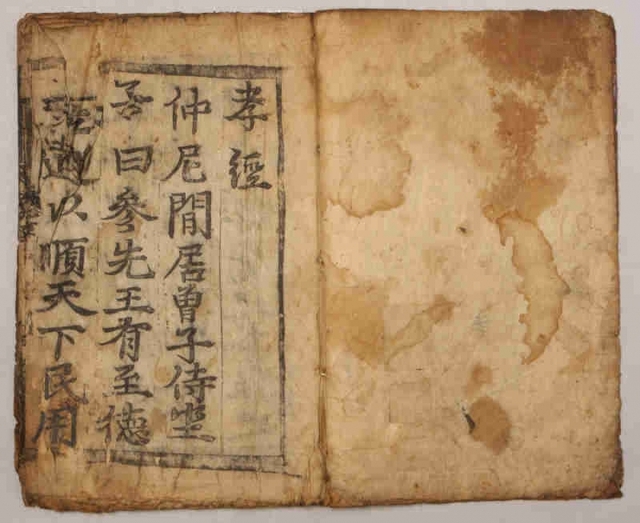 孝經
仲尼閒居曾子侍坐
子曰參先王有至德
要道以順天下民用